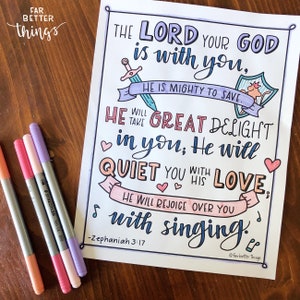 FAR
BETTER
things
THE LORD YOUR GOD
is with you,
HE IS MIGHTY TO SAVE.
HE WILL TAKE GREAT DELIGHT
in you; He will
QUIET YOU WITH HIS LOVE,
HE WILL REJOICE OVER YOU
with singing.
-Zephaniah 3:17
©far better things